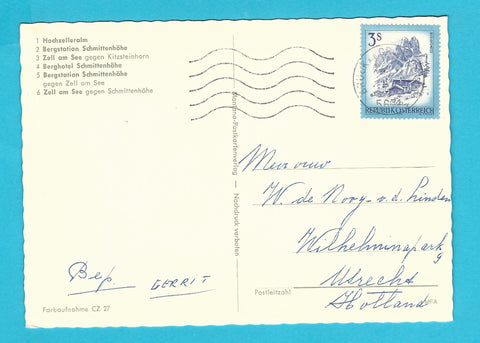 1 Hochzelleralm
2 Bergstation Schmittenhöhe
3 Zell am See gegen Kitzsteinhorn
4 Berghotel Schmittenhöhe
5 Bergstation Schmittenhöhe
gegen Zell am See
6 Zell am See gegen Schmittenhöhe
3S
REPUBLIK ÖSTERREICH
Mevrouw
W. de Nooy-v.d. Linden
Wilhelminapark
9
Utrecht
Holland
Bep.
GERRIT
Postleitzahl
Farbaufnahme CZ 27
Postkartenverlag — Nachdruck verboten